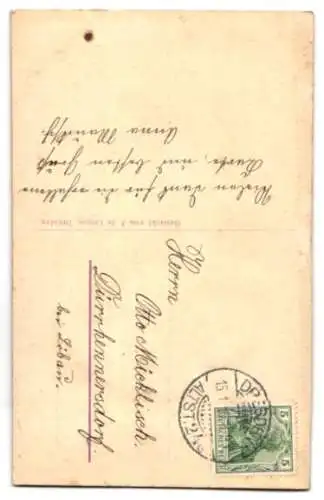 Vielen Dank für die erhaltene
Karte, und besten Gruß
Anna
Herrn
Otto Micklisch.
Dürrhennersdorf.
bei Löbau.
DRESDEN
ALTST.
5
5